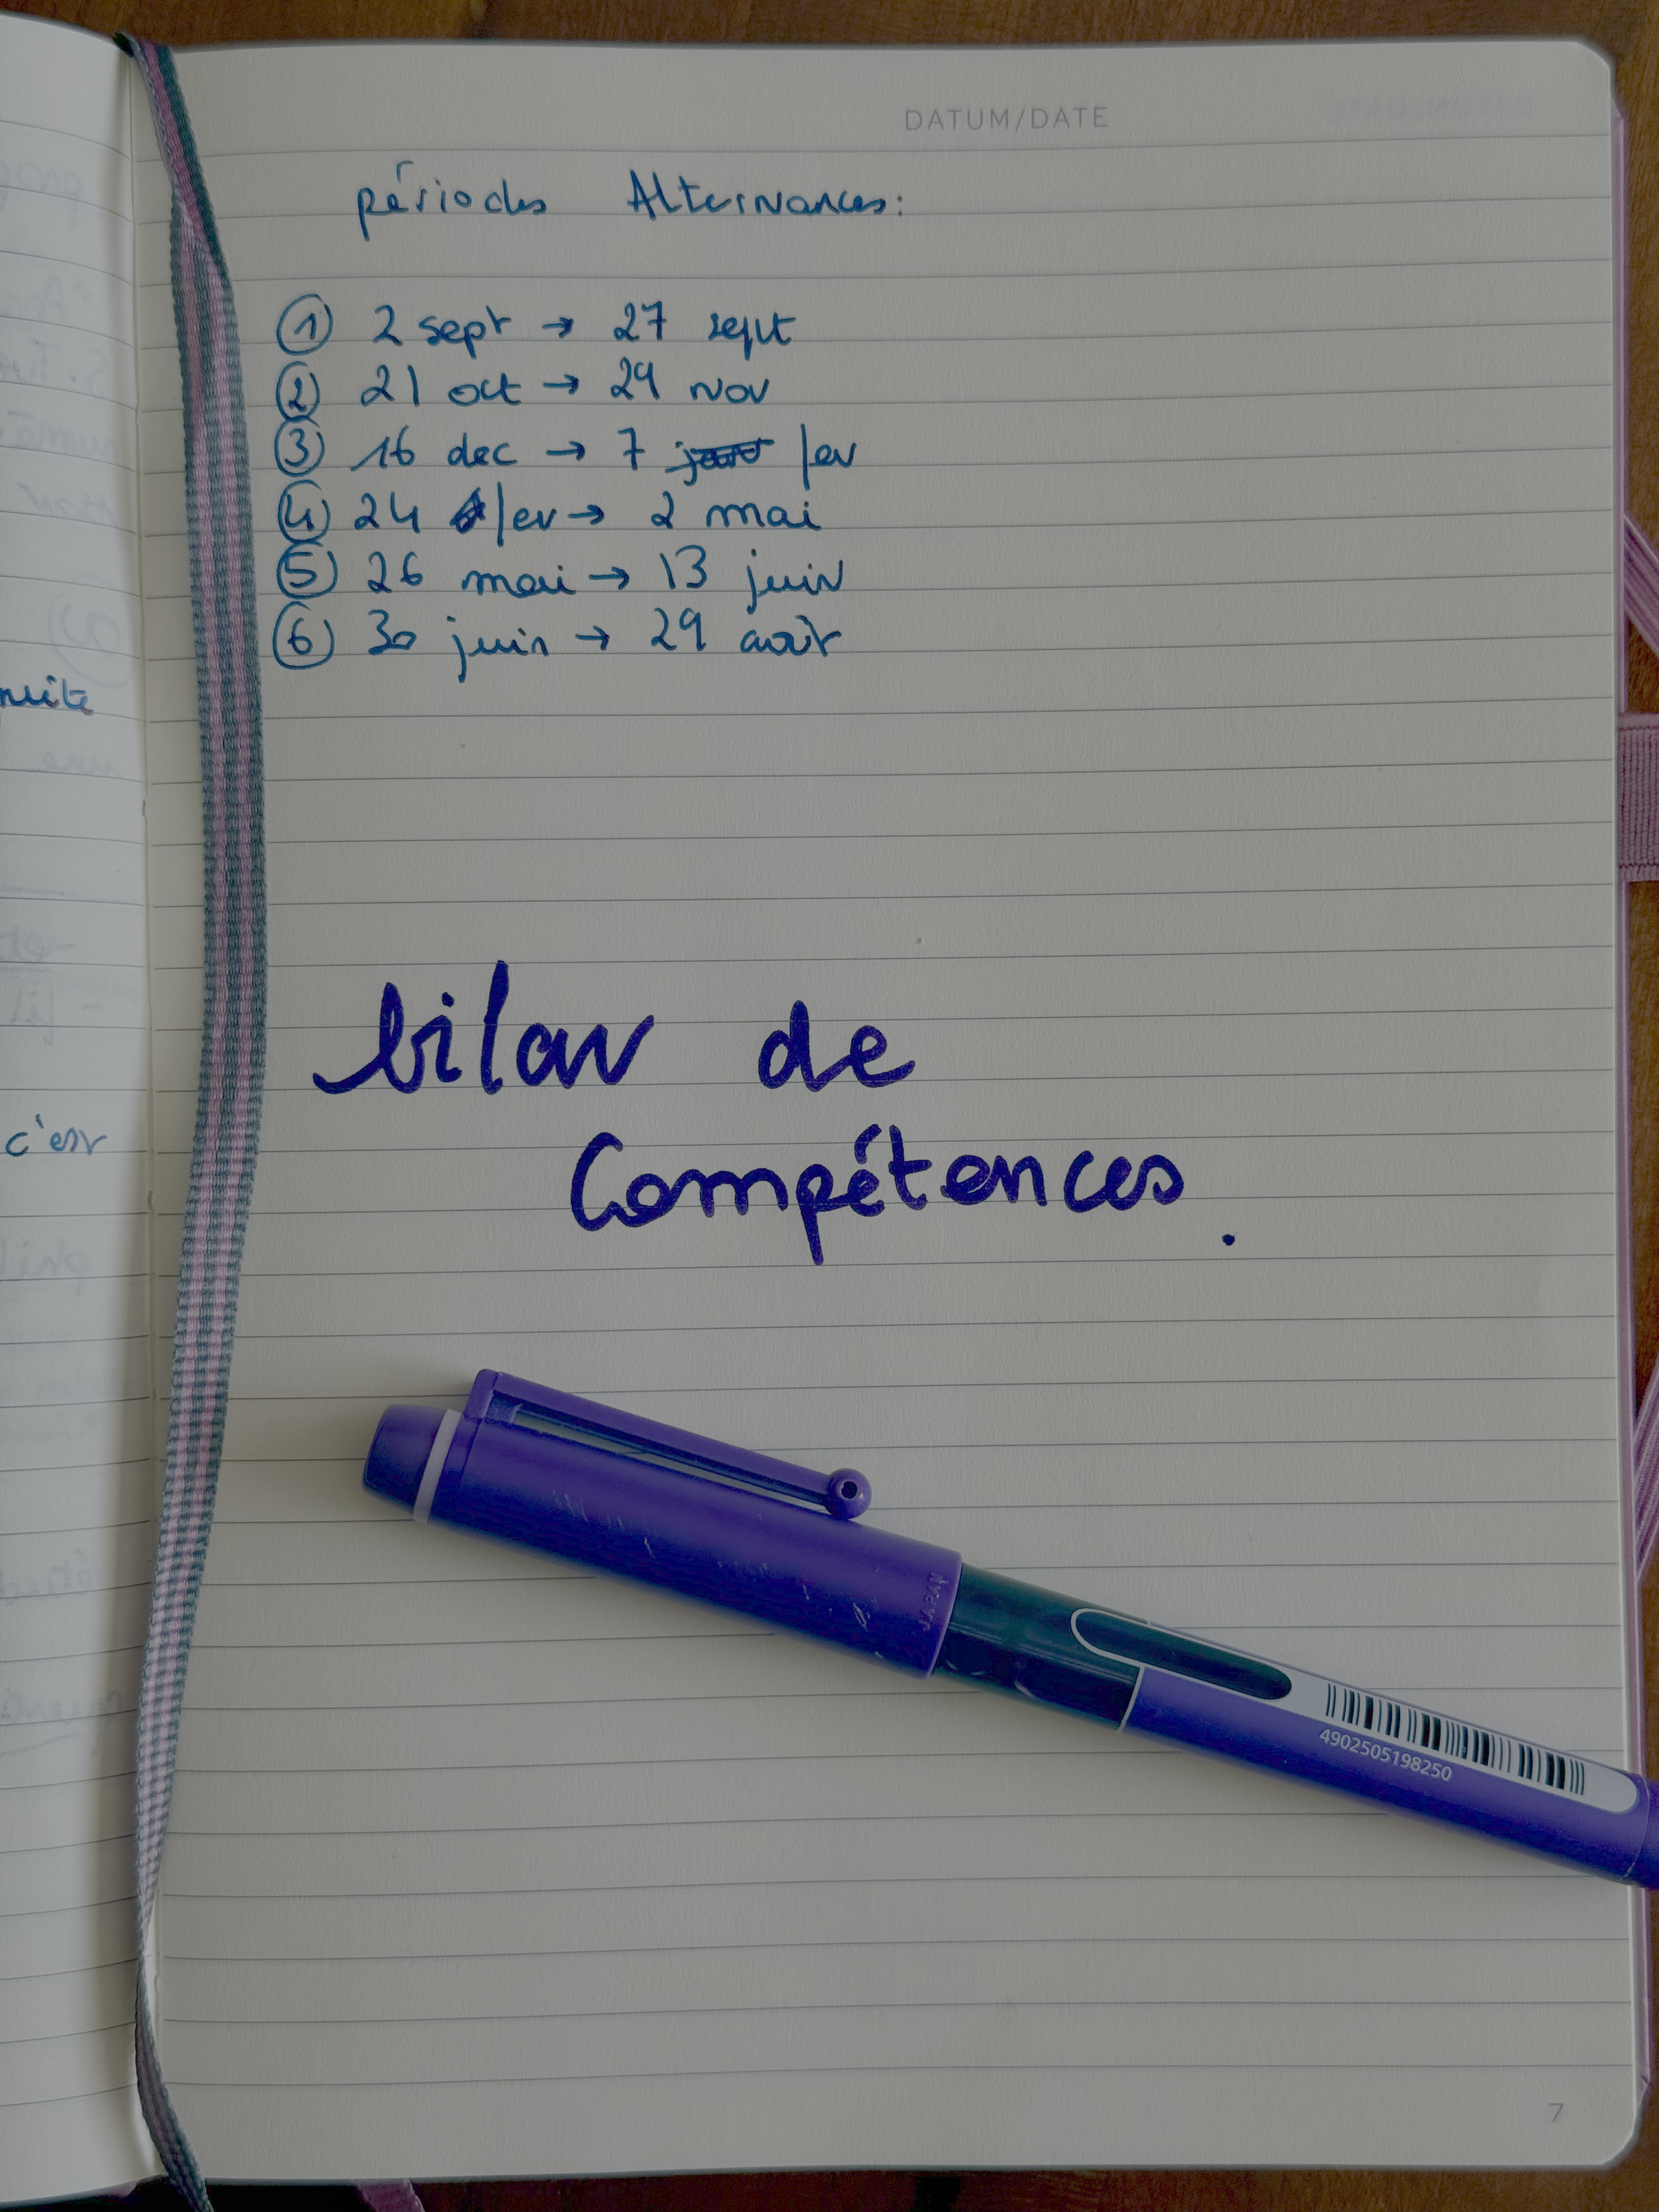 DATUM/DATE
périodes Alternances:
① 2 sept → 27 sept
② 21 oct → 29 nov
③ 16 dec → 7 janv fev
④ 24 fev → 2 mai
⑤ 26 mai → 13 juin
⑥ 30 juin → 29 août
nuite
c'est
bilan de
Compétences.
JAPAN
4902505198250
7